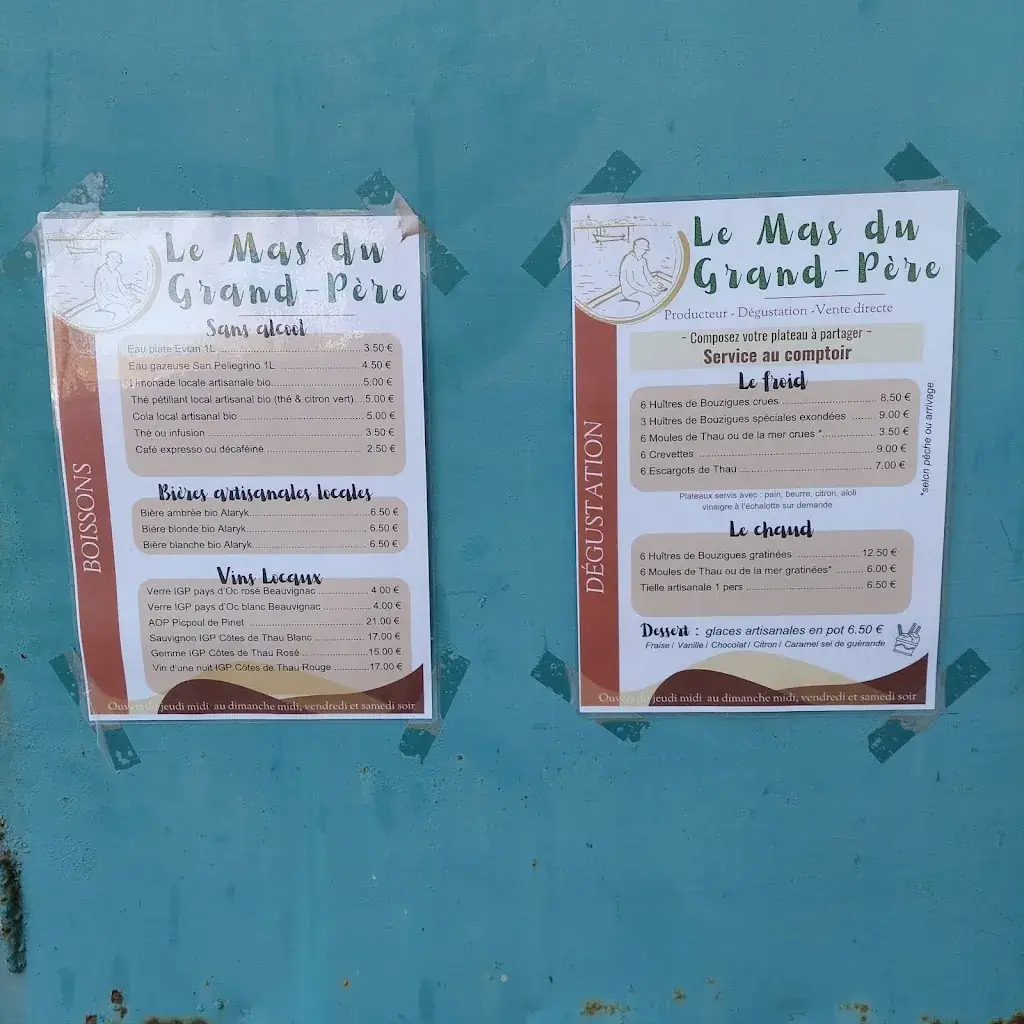 Le Mas du
Grand-Père
Sans alcool
Eau plate Evian 1L 3.50 €
Eau gazeuse San Pellegrino 1L 4.50 €
Limonade locale artisanale bio 5.00 €
Thé pétillant local artisanal bio (thé & citron vert) 5.00 €
Cola local artisanal bio 5.00 €
Thé ou infusion 3.50 €
Café expresso ou décaféiné 2.50 €
BOISSONS
Bières artisanales locales
Bière ambrée bio Alaryk 6.50 €
Bière blonde bio Alaryk 6.50 €
Bière blanche bio Alaryk 6.50 €
Vins Locaux
Verre IGP pays d'Oc rosé Beauvignac 4.00 €
Verre IGP pays d'Oc blanc Beauvignac 4.00 €
AOP Picpoul de Pinet 21.00 €
Sauvignon IGP Côtes de Thau Blanc 17.00 €
Gemme IGP Côtes de Thau Rosé 15.00 €
Vin d'une nuit IGP Côtes de Thau Rouge 17.00 €
Ouvert du jeudi midi au dimanche midi, vendredi et samedi soir
Le Mas du
Grand-Père
Producteur - Dégustation -Vente directe
~ Composez votre plateau à partager ~
Service au comptoir
Le froid
6 Huîtres de Bouzigues crues 8.50 €
3 Huîtres de Bouzigues spéciales exondées 9.00 €
6 Moules de Thau ou de la mer crues * 3.50 €
6 Crevettes 9.00 €
6 Escargots de Thau 7.00 €
*selon pêche ou arrivage
Plateaux servis avec : pain, beurre, citron, aïoli
vinaigre à l'échalotte sur demande
DÉGUSTATION
Le chaud
6 Huîtres de Bouzigues gratinées 12.50 €
6 Moules de Thau ou de la mer gratinées* 6.00 €
Tielle artisanale 1 pers 6.50 €
Dessert : glaces artisanales en pot 6.50 €
Fraise / Vanille / Chocolat / Citron / Caramel sel de guérande
Ouvert du jeudi midi au dimanche midi, vendredi et samedi soir